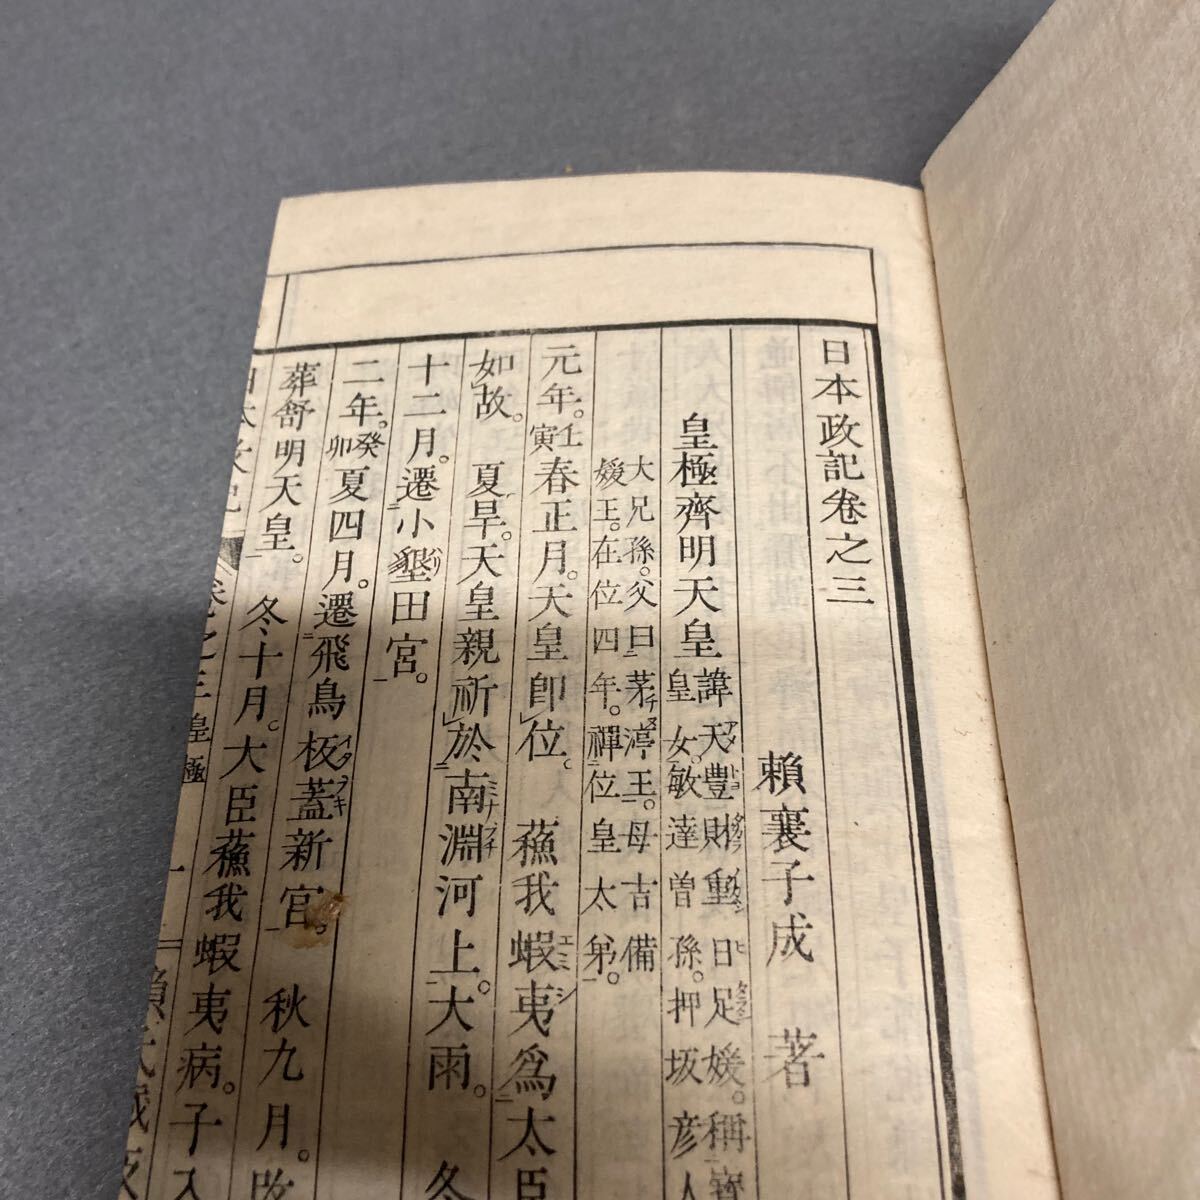 日本政記卷之三
賴襄子成 著
皇極齊明天皇
諱天豐財重日足媛。稱寶
皇女。敏達曽孫。押坂彦人
大兄孫。父曰茅渟王。母吉備
媛王。在位四年。禪位皇太弟。
元年。壬寅春正月。天皇卽位。 蘓我蝦夷爲太臣
如故。 夏旱。天皇親祈於南淵河上。大雨。 冬
十二月。遷小墾田宮。
二年。癸卯夏四月。遷飛鳥板蓋新宮。 秋九月。改
葬舒明天皇。 冬十月。大臣蘓我蝦夷病。子入
日本政記 卷之三 皇極 一 賴氏藏